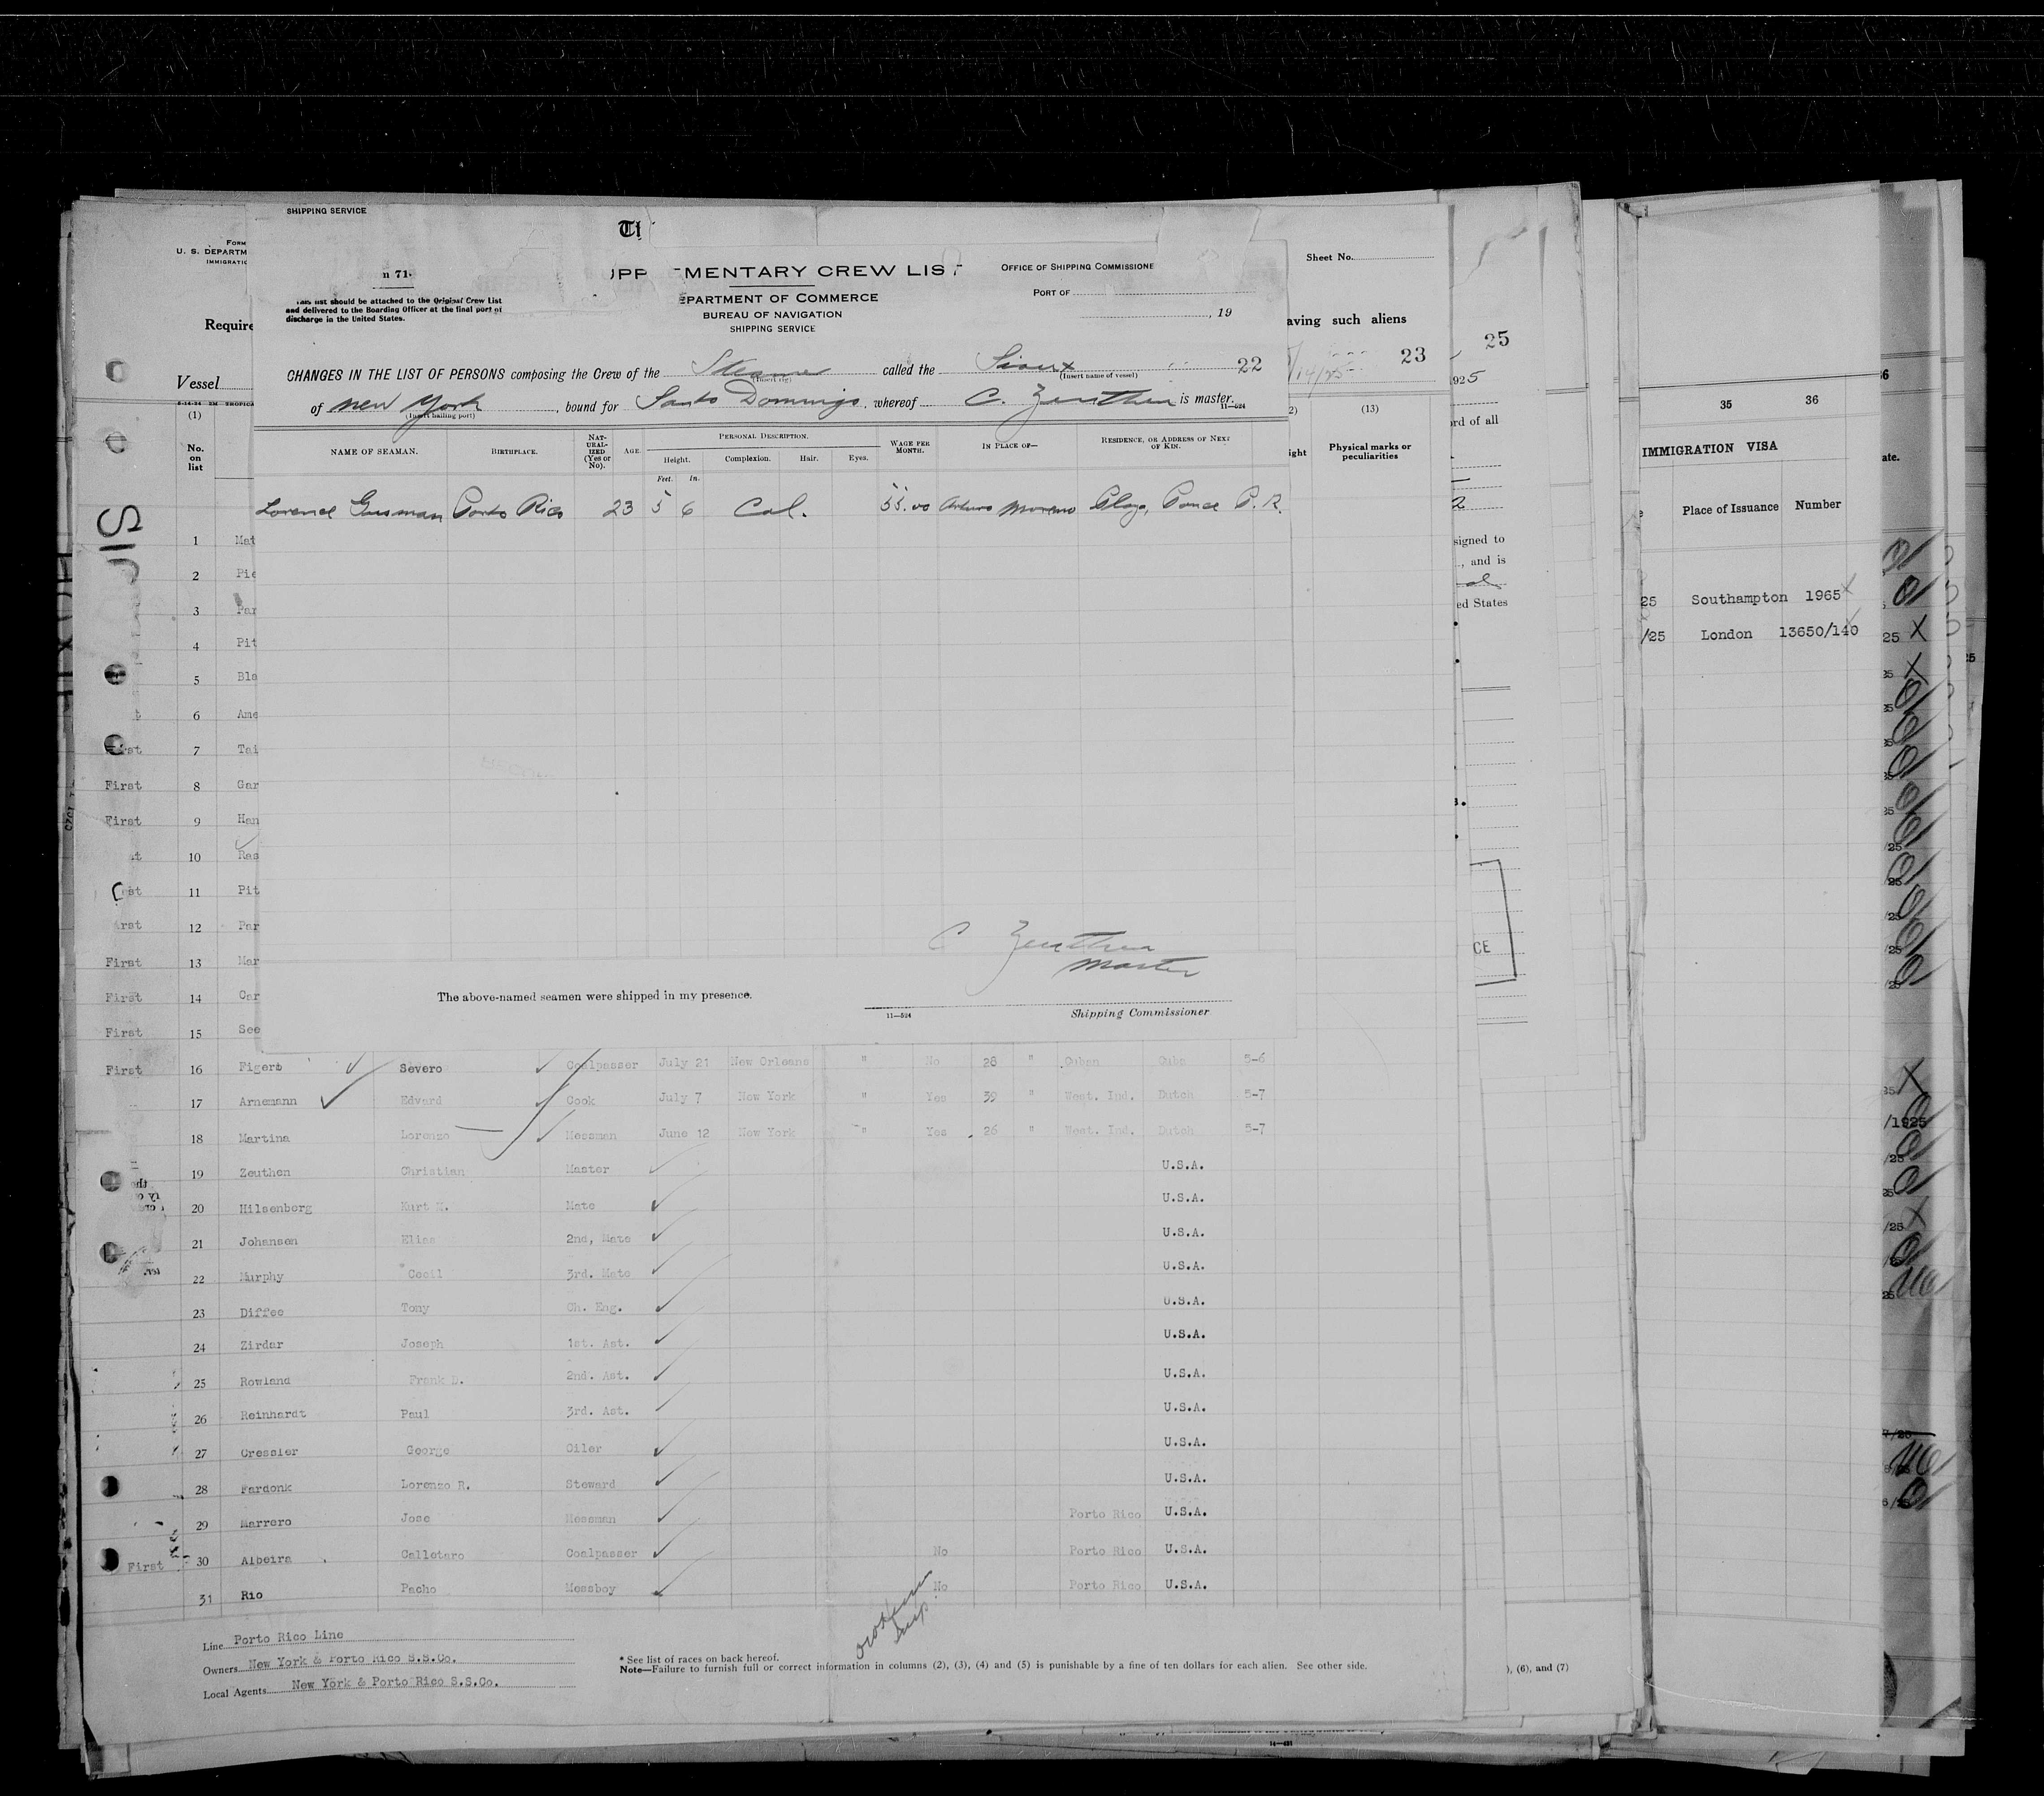 SHIPPING SERVICE
FORM
U. S. DEPARTM
IMMIGRATIO
n 71
MENTARY CREW LIST
OFFICE OF SHIPPING COMMISSIONE
Sheet No.
This list should be attached to the Original Crew List
and delivered to the Boarding Officer at the final port of
discharge in the United States.
EPARTMENT OF COMMERCE
PORT OF
BUREAU OF NAVIGATION
, 19
SHIPPING SERVICE
Require
aving such aliens
25
23
22
1925
Vessel
CHANGES IN THE LIST OF PERSONS composing the Crew of the Steamer called the Sioux
(Insert rig) (Insert name of vessel)
of New York, bound for Santo Domingo, whereof C. Zeuthen is master.
(Insert hailing port) 11—524
(1) (13)
No. on list
NAME OF SEAMAN. BIRTHPLACE. NAT-URAL-IZED (Yes or No). AGE. PERSONAL DESCRIPTION. Height. Complexion. Hair. Eyes. WAGE PER MONTH. IN PLACE OF— RESIDENCE, OR ADDRESS OF NEXT OF KIN.
Feet. In.
ight Physical marks or peculiarities
Lorence Gusman Porto Rico 23 5 6 Col. 55.00 Arturo Moreno Playa, Ponce P. R.
35 36
IMMIGRATION VISA
ate.
Place of Issuance Number
25 Southampton 1965
/25 London 13650/140
ord of all
signed to
, and is
ed States
1 Mat
2 Pie
3 Par
4 Pit
5 Bla
6 Ame
7 Tai
First 8 Gar
First 9 Han
10 Ras
11 Pit
12 Par
First 13 Mar
First 14 Car
First 15 See
C Zeuthen
Master
The above-named seamen were shipped in my presence.
11—524 Shipping Commissioner
First 16 Figert Severo Coalpasser July 21 New Orleans " No 28 " Cuban Cuba 5-6
17 Arnemann Edvard Cook July 7 New York " Yes 39 " West. Ind. Dutch 5-7
18 Martina Lorenzo Messman June 12 New York " Yes 26 " West. Ind. Dutch 5-7
19 Zeuthen Christian Master U.S.A.
20 Hilsenberg Kurt Mate U.S.A.
21 Johansen Elias 2nd, Mate U.S.A.
22 Murphy Cecil 3rd. Mate U.S.A.
23 Diffee Tony Ch. Eng. U.S.A.
24 Zirdar Joseph 1st. Ast. U.S.A.
25 Rowland Frank D. 2nd. Ast. U.S.A.
26 Reinhardt Paul 3rd. Ast. U.S.A.
27 Cressler George Oiler U.S.A.
28 Fardonk Lorenzo R. Steward U.S.A.
29 Marrero Jose Messman Porto Rico U.S.A.
First 30 Albeira Calletaro Coalpasser No Porto Rico U.S.A.
31 Rio Pacho Messboy No Porto Rico U.S.A.
Line Porto Rico Line
Owners New York & Porto Rico S.S.Co.
Local Agents New York & Porto Rico S.S.Co.
* See list of races on back hereof.
Note—Failure to furnish full or correct information in columns (2), (3), (4) and (5) is punishable by a fine of ten dollars for each alien. See other side.
), (6), and (7)